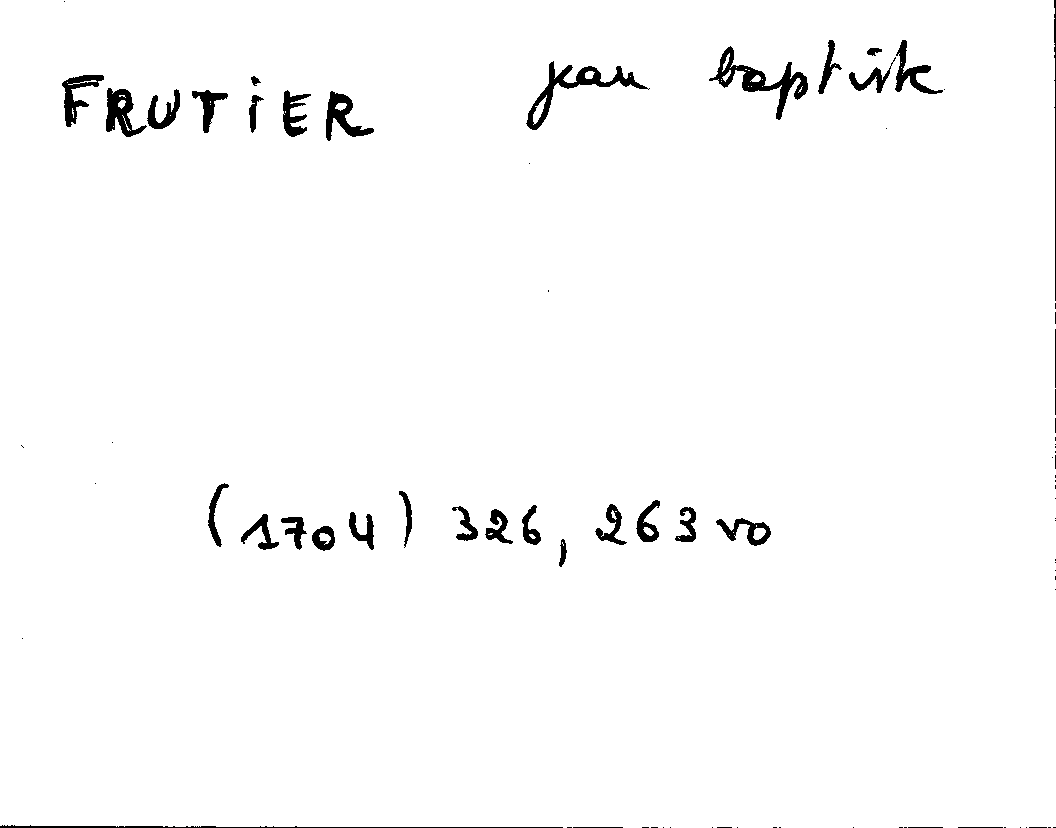 FRUTiER jean baptiste
(1704) 326, 263 vo